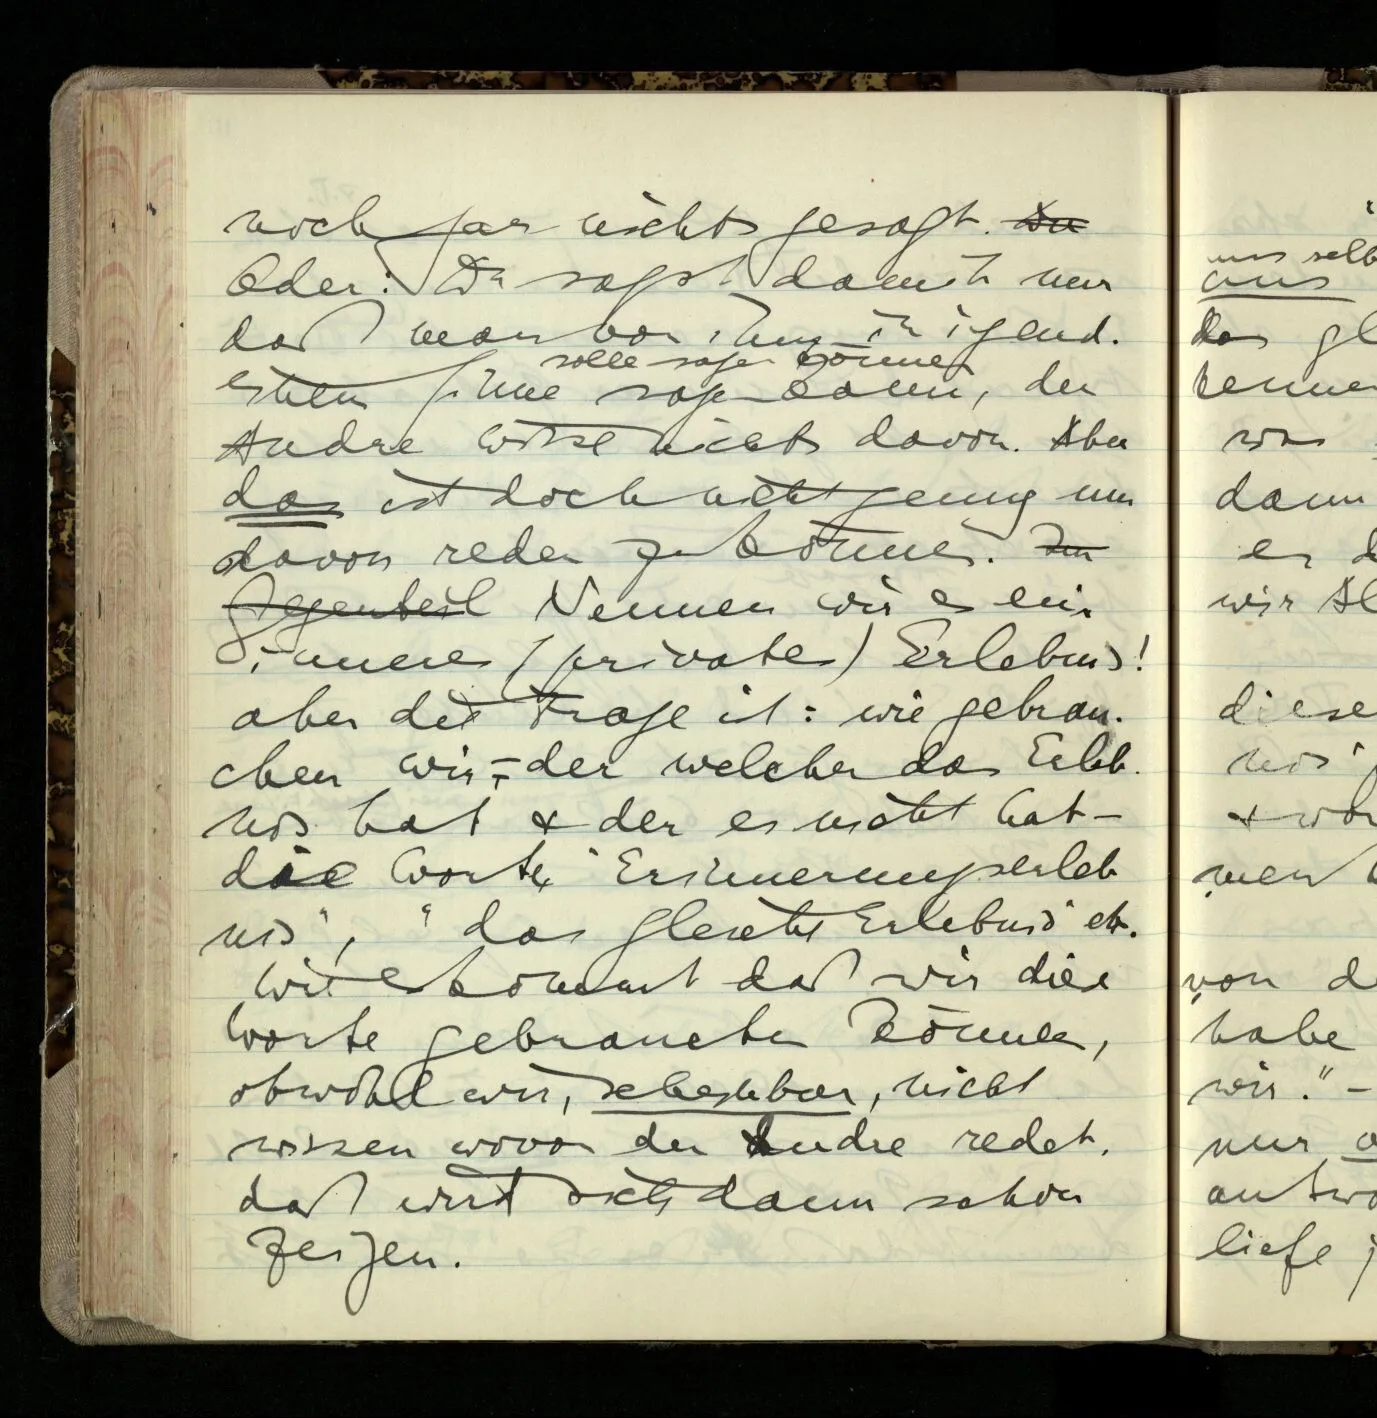 noch gar nichts gesagt. Du
Oder: Du sagst damit nur
daß man von ihm in irgend-
solle sagen können
einem Sinne sagen kann, der
Andre wisse nichts davon. Aber
das ist doch nicht genug um
davon reden zu können. Im
Gegenteil Nennen wir es ein
inneres (privates) Erlebnis!
aber die Frage ist: wie gebrau-
chen wir – der welcher das Erleb-
nis hat & der es nicht hat –
die Worte "Erinnerungserleb
nis", "das gleiche Erlebnis" etc.
Wie es kommt daß wir diese
Worte gebrauchen können,
obwohl wir, scheinbar, nicht
wissen wovon der Andre redet,
daß wird sich dann schon
zeigen.
uns selb
uns
das gl
kenne
was
dann
er d
wir Al
diese
nis'
& wor
wen
von d
habe
wir." –
nur a
antwo
liefe